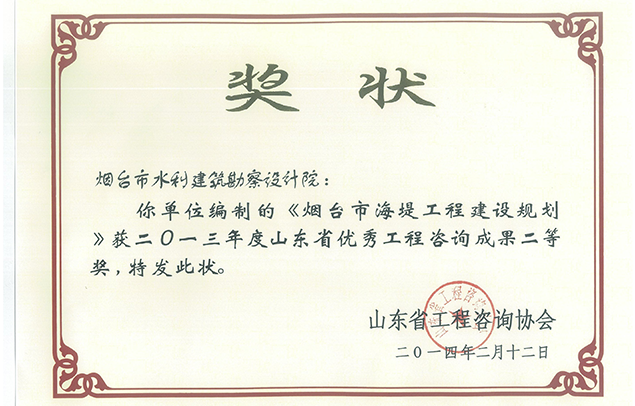 奖状
烟台市水利建筑勘察设计院：
你单位编制的《烟台市海堤工程建设规划
》获二〇一三年度山东省优秀工程咨询成果二等
奖，特发此状。
山东省工程咨询协会
二〇一四年二月十二日